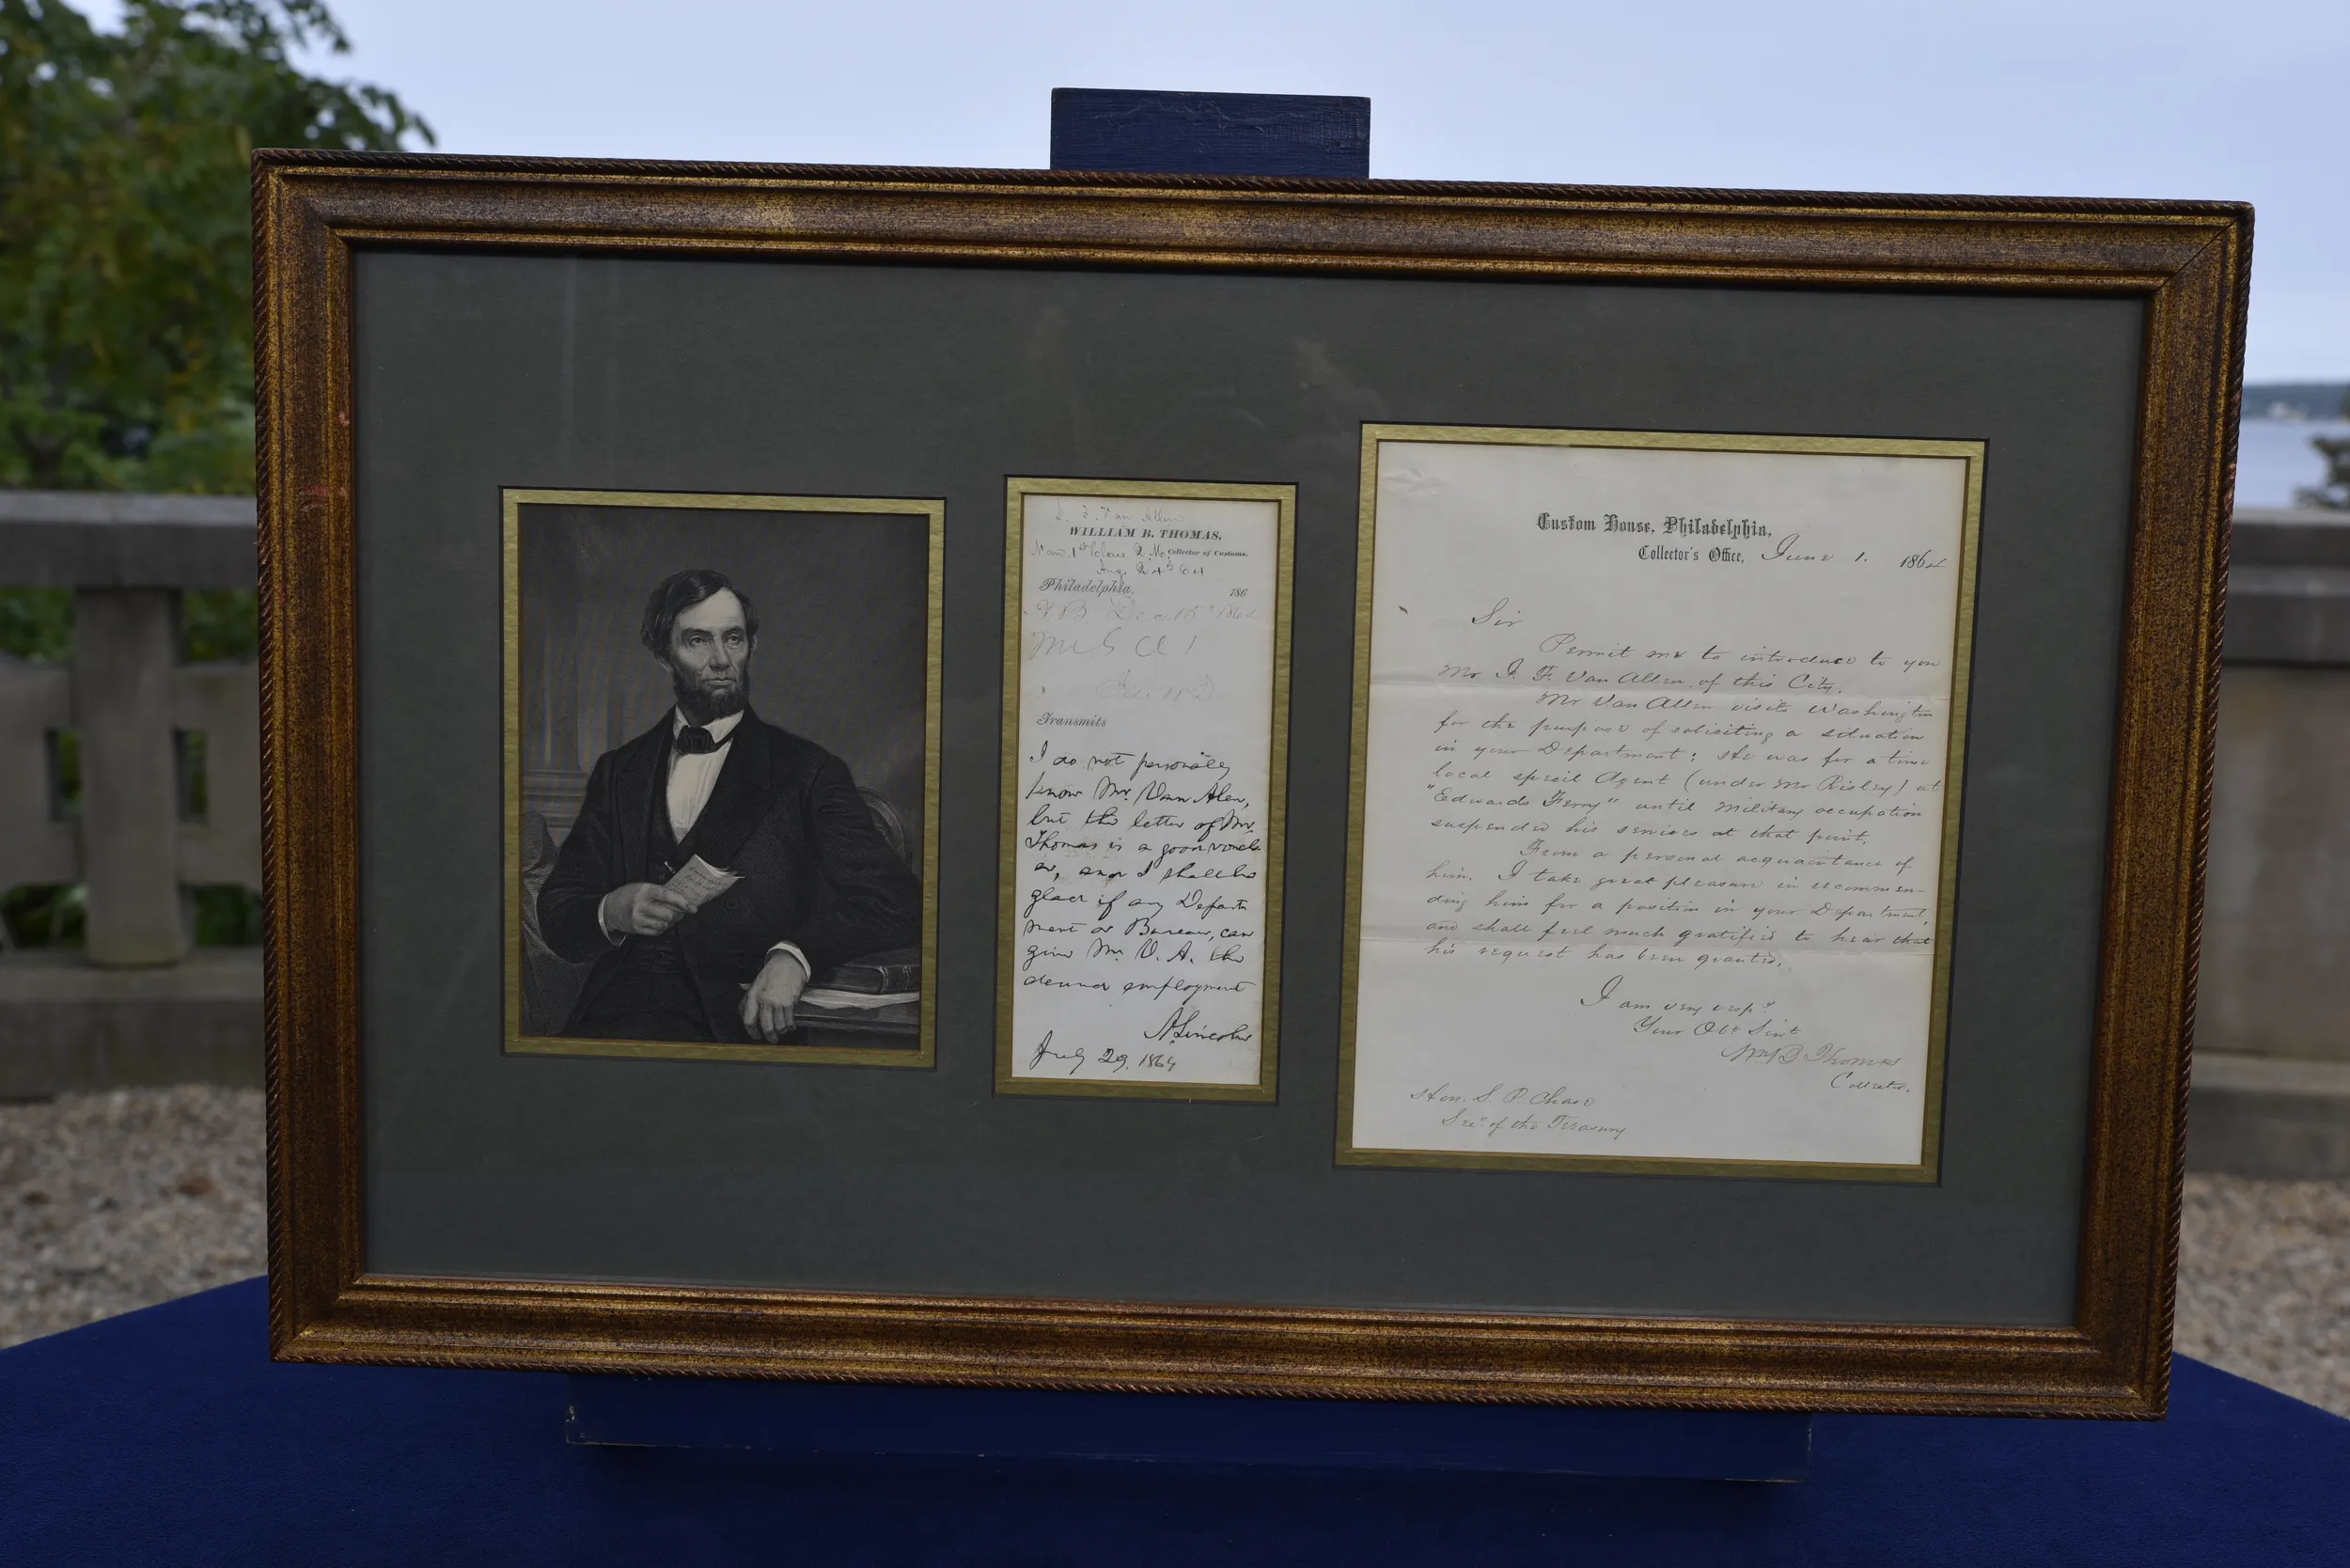 J. F. Van Allen
WILLIAM B. THOMAS,
Collector of Customs.
Aug. 24 64
Philadelphia, 186
Dec 15 1864
Transmits
I do not personally
know Mr. Van Alen,
but the letter of Mr.
Thomas is a good vouch-
er, and I shall be
glad if any Depart-
ment or Bureau, can
give Mr. V. A. the
desired employment
A. Lincoln
July 29, 1864
Custom House, Philadelphia,
Collector's Office, June 1. 1864
Sir
Permit me to introduce to you
Mr J. F. Van Allen, of this City.
Mr Van Allen visits Washington
for the purpose of soliciting a situation
in your Department; He was for a time
local special Agent (under Mr Risley) at
"Edwards Ferry" until Military occupation
suspended his services at that point.
From a personal acquaintance of
him. I take great pleasure in recommen-
ding him for a position in your Department,
and shall feel much gratified to hear that
his request has been granted.
I am very resp.y
Your Obt Servt
Wm B Thomas
Collector.
Hon. S. P. Chase
Sec. of the Treasury